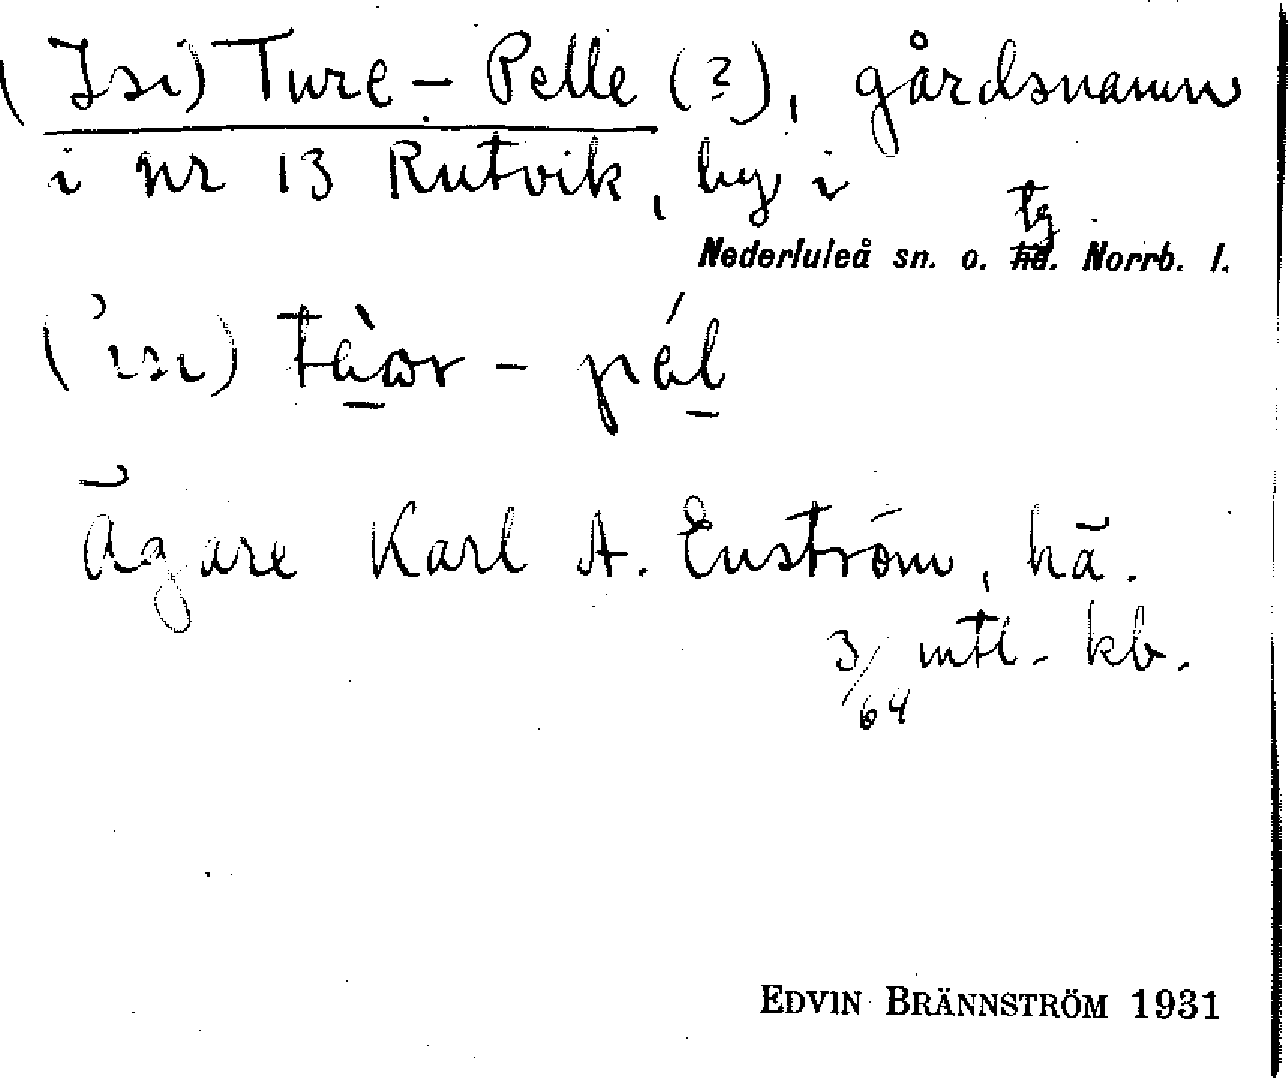 (Isi) Ture - Pelle (?), gårdsnamn
i nr 13 Rutvik, by i
Nederluleå sn. o. tg. Norrb. l.
('ısı) tàɷr - pél
Ägare Karl A. Enström, hä.
3/64 mtl. kb.
EDVIN BRÄNNSTRÖM 1931